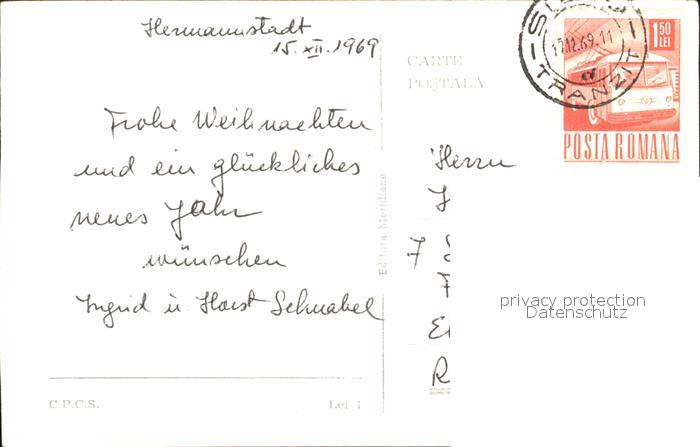 Hermannstadt
15. XII. 1969
Frohe Weihnachten
und ein glückliches
neues Jahr
wünschen
Ingrid u. Horst Schnabel
C.P.C.S.
Lei 1
Editura Meridiane
CARTE
POȘTALĂ
TRANZIT
1,50
LEI
POSTA ROMANA
Herrn
7
R
privacy protection
Datenschutz